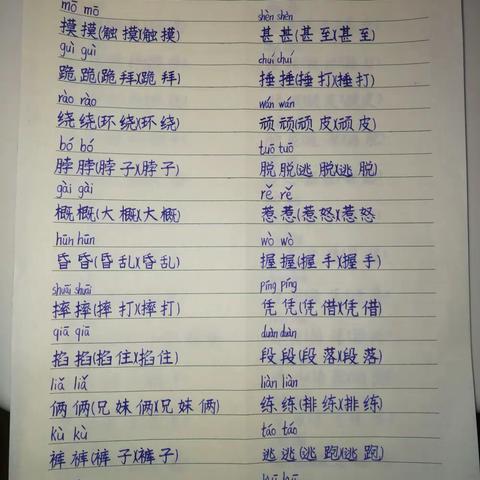 mō mō
摸摸(触摸)(触摸)
guì guì
跪跪(跪拜)(跪拜)
rào rào
绕绕(环绕)(环绕)
bó bó
脖脖(脖子)(脖子)
gài gài
概概(大概)(大概)
hūn hūn
昏昏(昏乱)(昏乱)
shuāi shuāi
摔摔(摔打)(摔打)
qiā qiā
掐掐(掐住)(掐住)
liǎ liǎ
俩俩(兄妹俩)(兄妹俩)
kù kù
裤裤(裤子)(裤子)
shèn shèn
甚甚(甚至)(甚至)
chuí chuí
捶捶(捶打)(捶打)
wán wán
顽顽(顽皮)(顽皮)
tuō tuō
脱脱(逃脱)(逃脱)
rě rě
惹惹(惹怒)(惹怒)
wò wò
握握(握手)(握手)
píng píng
凭凭(凭借)(凭借)
duàn duàn
段段(段落)(段落)
liàn liàn
练练(排练)(排练)
táo táo
逃逃(逃跑)(逃跑)